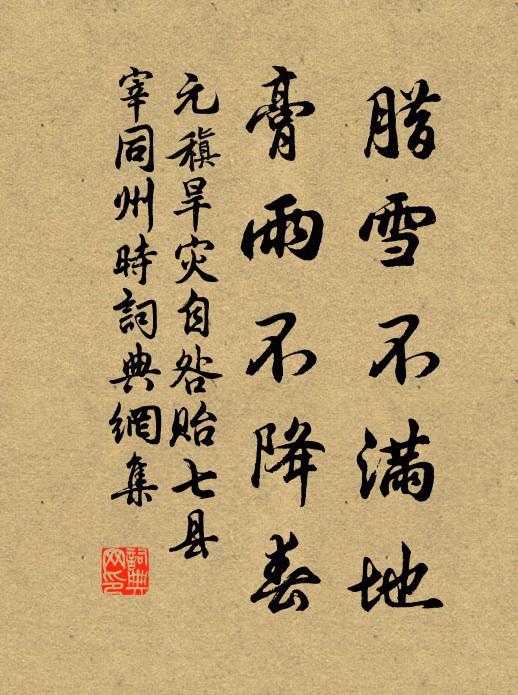 腊雪不满地
膏雨不降春
元稹旱灾自咎贻七县
宰同州时詞典網集
詞典网印